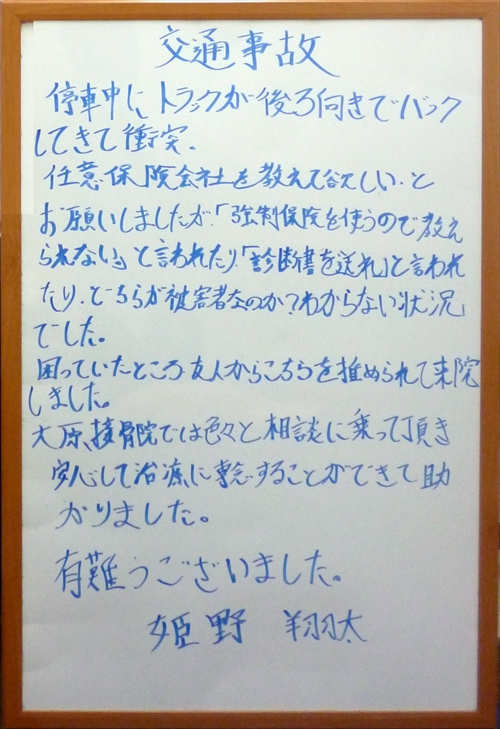 交通事故
停車中にトラックが後ろ向きでバック
してきて衝突、
任意保険会社を教えて欲しい、と
お願いしましたが、「強制保険を使うので教え
られない」と言われたり、「診断書を送れ」と言われ
たり、どちらが被害者なのか?わからない状況
でした。
困っていたところ友人からこちらを推められて来院
しました。
大原接骨院では色々と相談に乗って頂き
安心して治療に専念することができて助
かりました。
有難うございました。
姫野 翔太